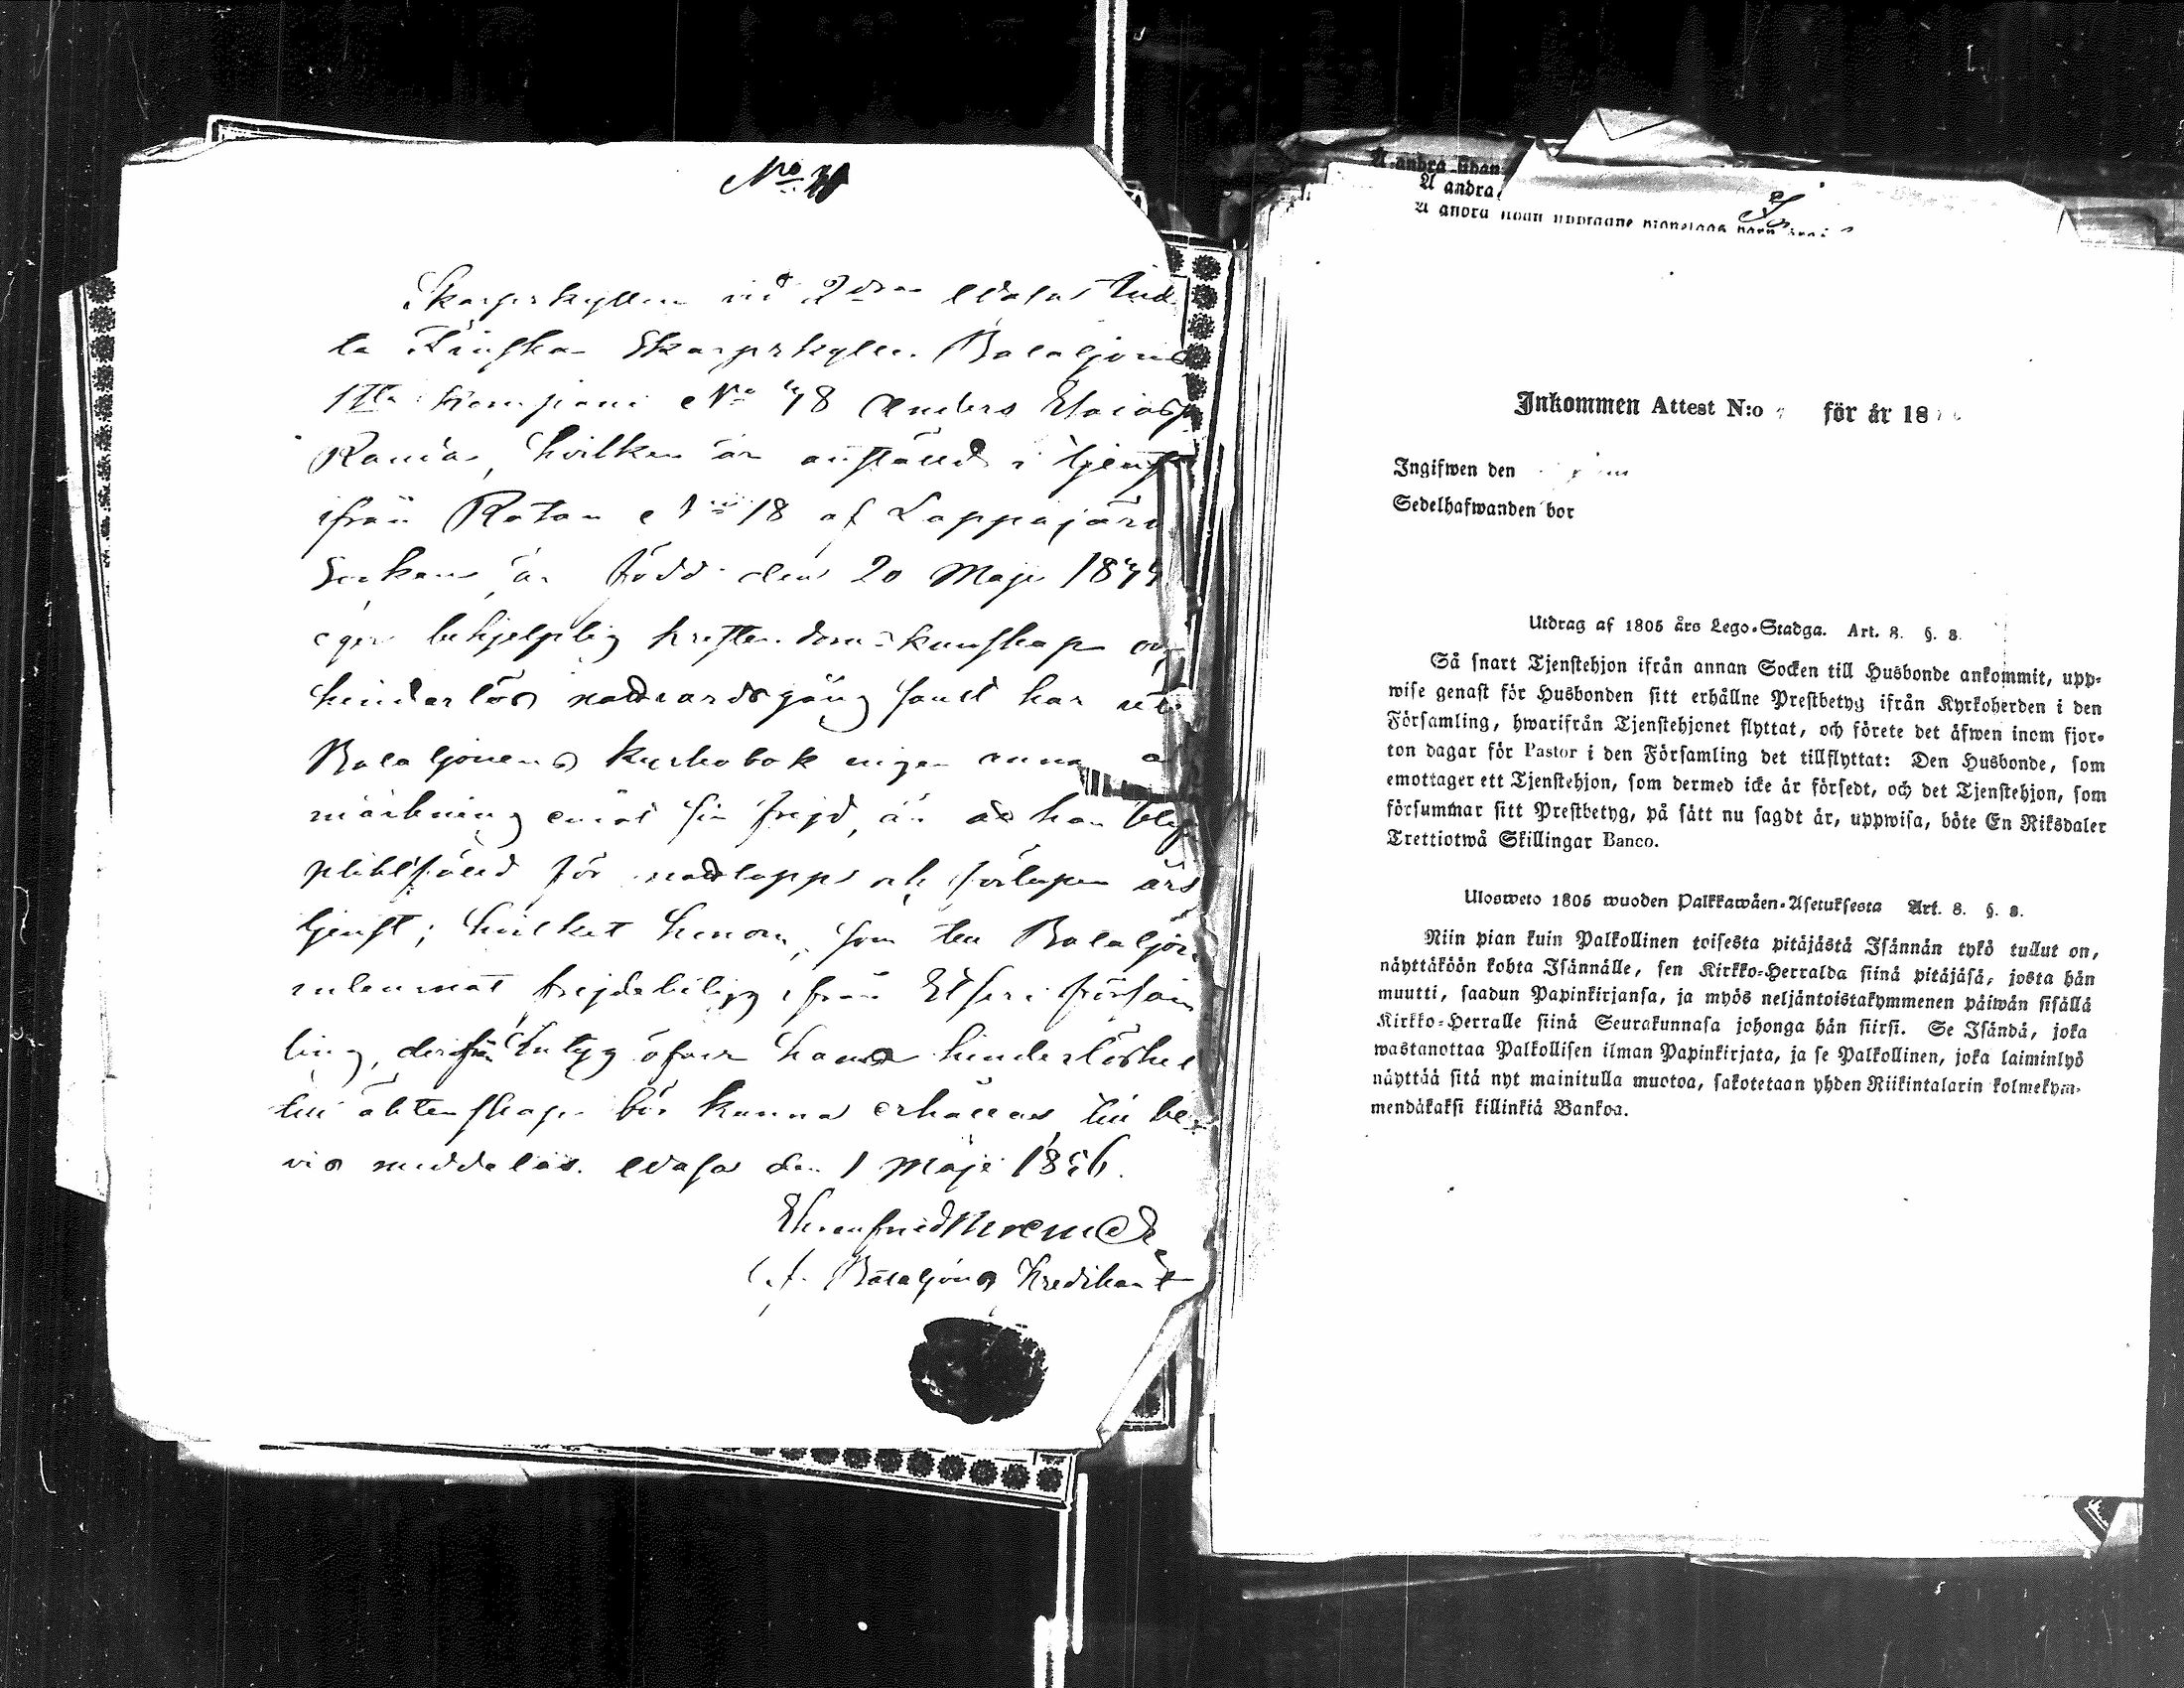 No
Skarpskytten vid 2dra Wasa Indel
ta Finska Skarpskytte Bataljons
1sta Kompani No 48 Anders Elias
hvilken är anställd i tjenst
ifrån Rotan No 18 af Lappajärvi
Socken, är född den 20 Maji 1844
eger behjelplig kristendoms kunskap och
hinderlös nattvardsgång samt har uti
Bataljonens kyrkobok ingen anna an
märkning emot sin frejd, än att han blif
pliktfälld för och års
tjenst; hvilket honom, som till Bataljo
frejdebetyg ifrån Etseri försam
ling, derifrån betyg öfver hans hinderlöshet
till äktenskap bör kunna erhållas, till be
vis meddelas. Wasa den 1 Maji 1856.
Ehrenfried
t.f. Bataljons Predikant
A andra sidan
A andra
A andra sidan
Inkommen Attest N:o för år 18
Ingifwen den
Sedelhafwanden bor
Utdrag af 1805 års Lego-Stadga. Art. 8. §. 8.
Så snart Tjenstehjon ifrån annan Socken till Husbonde ankommit, upp-
wise genast för Husbonden sitt erhållne Prestbetyg ifrån Kyrkoherden i den
Församling, hwarifrån Tjenstehjonet flyttat, och förete det åfwen inom fjor-
ton dagar för Pastor i den Församling det tillflyttat: Den Husbonde, som
emottager ett Tjenstehjon, som dermed icke är försedt, och det Tjenstehjon, som
försummar sitt Prestbetyg, på sätt nu sagdt är, uppwisa, böte En Riksdaler
Trettiotwå Skillingar Banco.
Ulosweto 1805 wuoden Palkkawäen-Asetuksesta Art. 8. §. 8.
Niin pian kuin Palkollinen toisesta pitäjästä Isännän tykö tullut on,
näyttäköön kohta Isännälle, sen Kirkko-Herralda siinä pitäjäsä, josta hän
muutti, saadun Papinkirjansa, ja myös neljäntoistakymmenen päiwän sisällä
Kirkko-Herralle siinä Seurakunnasa johonga hän siirsi. Se Isändä, joka
wastanottaa Palkollisen ilman Papinkirjata, ja se Palkollinen, joka laiminlyö
näyttää sitä nyt mainitulla muotoa, sakotetaan yhden Riikintalarin kolmekym-
mendäkaksi killinkiä Bankoa.